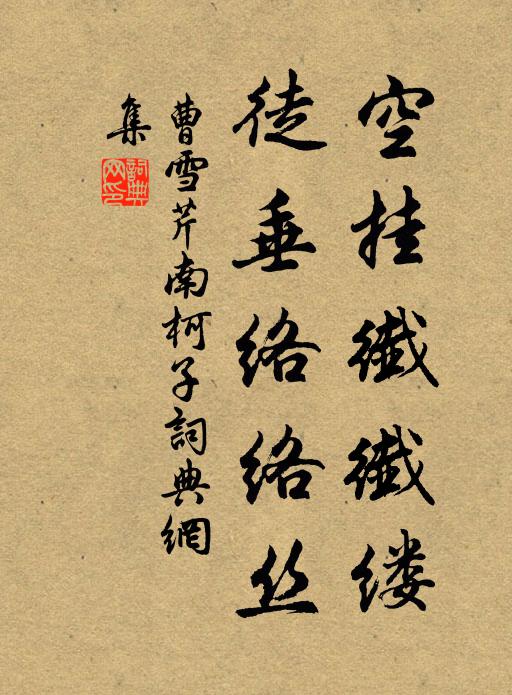 空挂纖纖缕
徒垂络络丝
曹雪芹南柯子詞典網
集
詞典网印